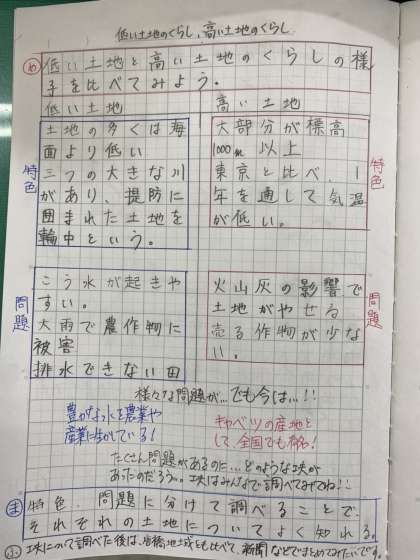 低い土地のくらし、高い土地のくらし
め
低い土地と高い土地のくらしの様
子を比べてみよう。
低い土地
特色
土地の多くは海
面より低い
三つの大きな川
があり、提防に
囲まれた土地を
輪中という。
高い土地
特色
大部分が標高
1000m以上
東京と比べ、1
年を通して気温
が低い。
問題
こう水が起きや
すい。
大雨で農作物に
被害
排水できない田
問題
火山灰の影響で
土地がやせる
売る作物が少な
い。
様々な問題が…でも今は…!!
豊かな水を農業や
産業に生かしている!
キャベツの産地と
して全国でも有名!
たくさん問題があるのに…どのような工夫が
あったのだろう。。工夫はみんなで調べてみてね!!
ま
特色、問題に分けて調べることで、
それぞれの土地についてよく知れる。
工夫について調べた後は、
地域とも比べて、新聞などでまとめてみたいです。